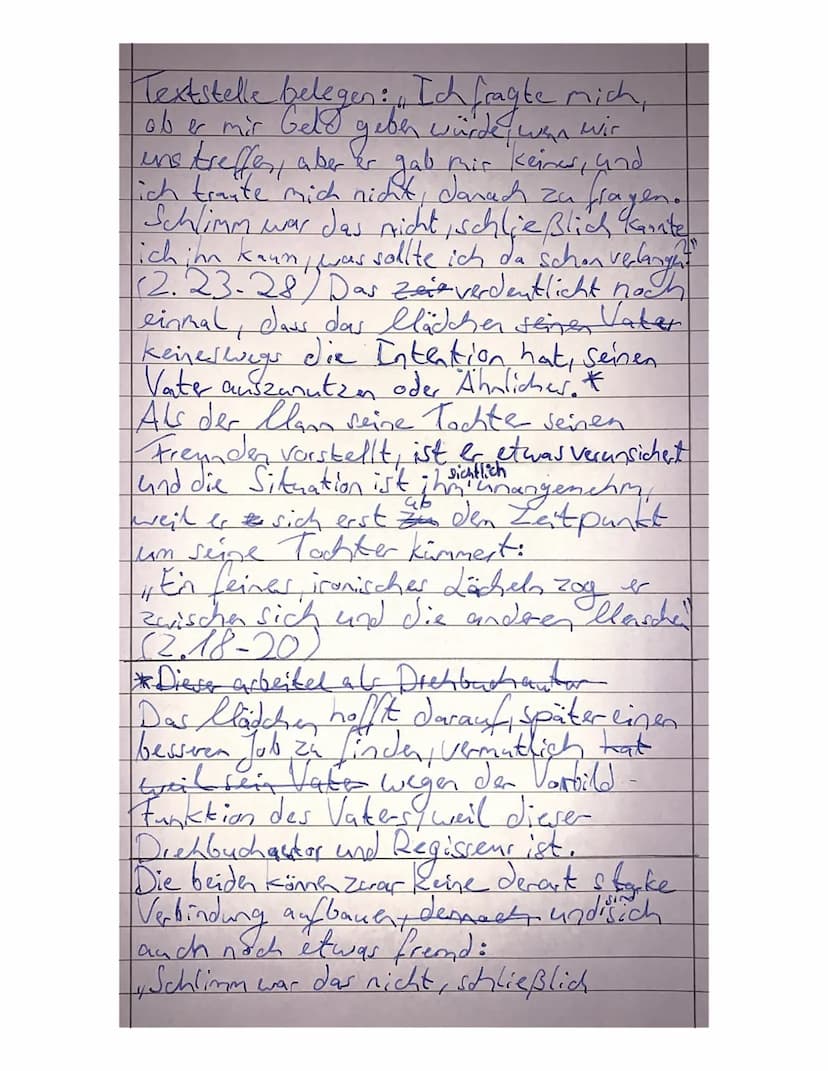 Textstelle belegen: „Ich fragte mich,
ob er mir Geld geben würde, wenn wir
uns treffen, aber er gab mir keines, und
ich traute mich nicht, danach zu fragen.
Schlimm war das nicht, schließlich kannte
ich ihn kaum, was sollte ich da schon verlangen?"
(Z. 23-28) Das zeit verdeutlicht noch
einmal, dass das Mädchen seinen Vater
keineswegs die Intention hat, seinen
Vater auszunutzen oder Ähnliches.*
Als der Mann seine Tochter seinen
Freunden vorstellt, ist er etwas verunsichert
und die Situation ist ihm sichtlich unangenehm,
weil er sich erst zu ab den Zeitpunkt
um seine Tochter kümmert:
„Ein feines, ironisches Lächeln zog er
zwischen sich und die anderen Menschen"
(Z. 18-20)
*Dieser arbeitet als Drehbuchautor
Das Mädchen hofft darauf, später einen
besseren Job zu finden, vermutlich hat
weil sein Vater wegen der Vorbild-
Funktion des Vaters, weil dieser
Drehbuchautor und Regisseur ist.
Die beiden können zwar keine derart starke
Verbindung aufbauen, dennoch und sind sich
auch noch etwas fremd:
„Schlimm war das nicht, schließlich